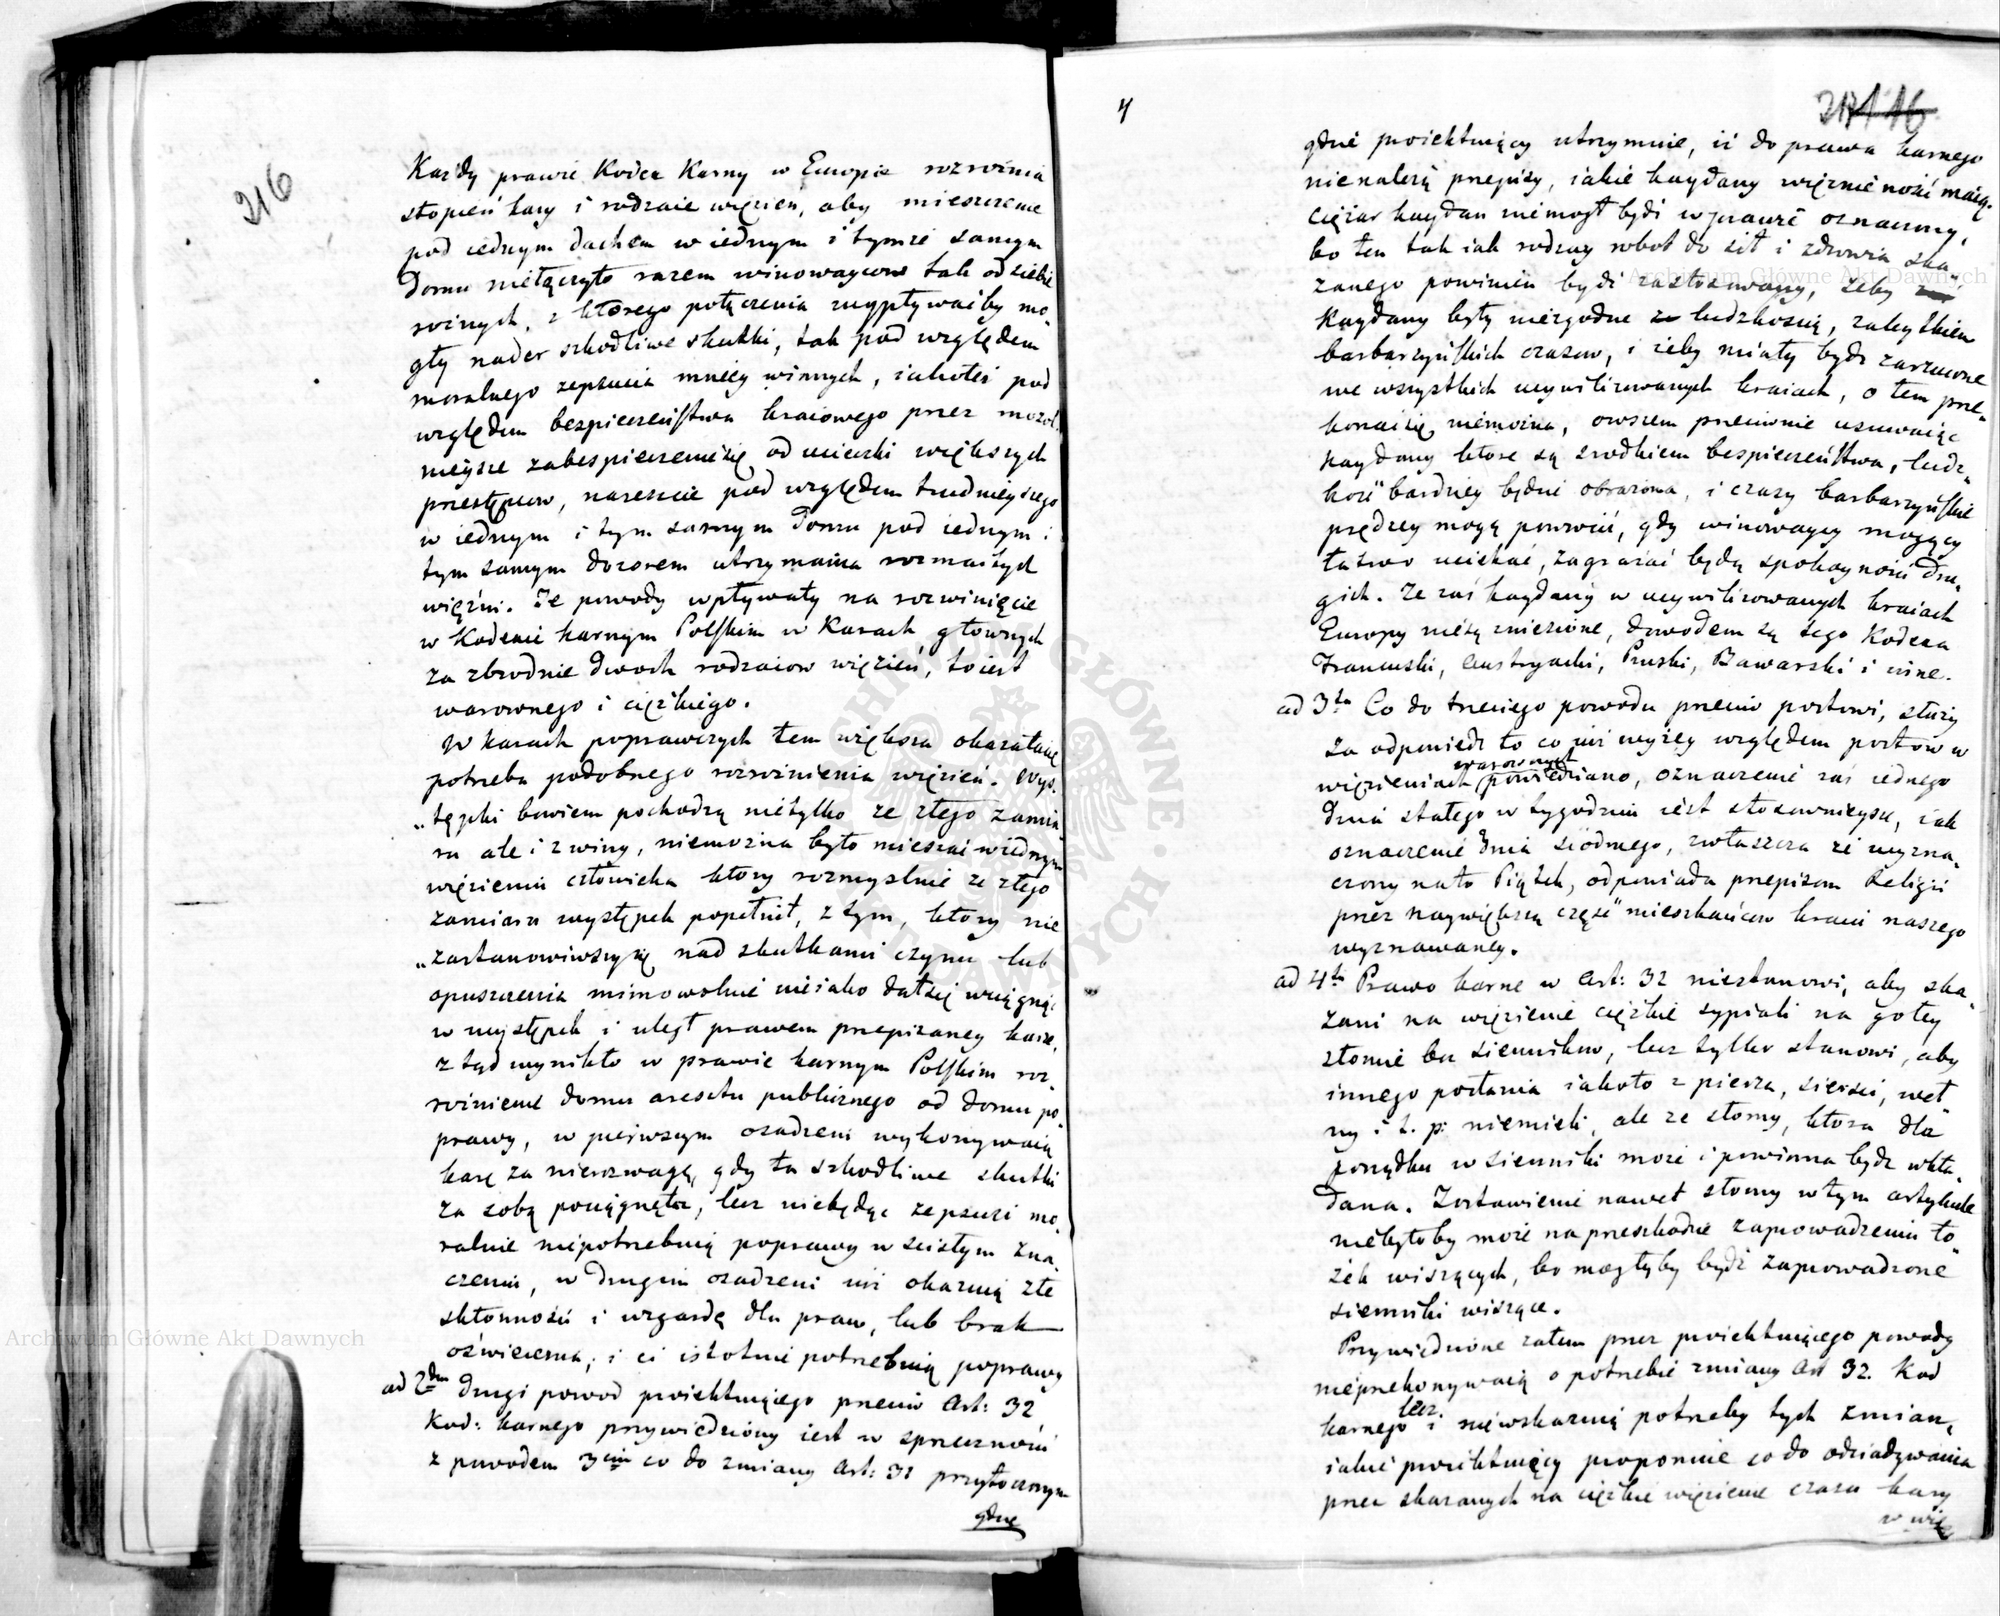 216
Każdy prawie Kodex Karny w Europie rozroznia
stopień kary i rodzaie więzien, aby mieszczenie
pod iednym dachem w iednym i tymże samym
Domu niełączyło razem winowaycow tak od siebie
roznych, z którego połączenia wypływaćby mo„
gły nader szkodliwe skutki, tak pod względem
moralnego zepsucia mniey winnych, iakoteż pod
względem bezpieczeństwa kraiowego przez
mieysce zabespieczenie się od ucieczki większych
przestępcow, nareszcie pod względem trudnieyszego
w iednym i tym samym Domu pod iednym i
tym samym dozorem utrzymania rozmaitych
więźni. Te powody wpływały na rozwinięcie
w Kodexie karnym Polskim w Karach głownych
za zbrodnie dwoch rodzaiow więzień, to iest
warownego i ciężkiego.
W karach poprawczych tem większa okazała się
potrzeba podobnego rozroznienia więzień. Wys„
„tępki bowiem pochodzą nietylko ze złego zamia„
ru ale i z winy, niemożna było mieszać w iednym
więzieniu człowieka ktory rozmyslnie ze złego
zamiaru występek popełnił, z tym, ktory nie
„zastanowiwszy się nad skutkami czynu lub
opuszczenia mimowolnie nieiako dał się wciągnąć
w występek i uległ prawem przepisaney karze,
z tąd wynikło w prawie karnym Polskim roz„
roznienie domu aresztu publicznego od domu po„
prawy, w pierwszym osadzeni wykonywaią
karę za nierozwagę, gdy ta szkodliwe skutki
za sobą pociągnęła, lecz niebędąc zepsuci mo„
ralnie niepotrzebuią poprawy w scisłym zna„
czeniu, w drugim osadzeni iuż okazuią złe
skłonności i wzgardę dla praw, lub brak
oświecenia, i ci istotnie potrzebuią poprawy
ad 2do Drugi powod proiektuiącego przeciw Art: 32
Kod: karnego przywiedziony iest w sprzeczności
z powodem 3cim co do zmiany Art: 31 przytoczonym
gdzie
4
217 116
gdzie proiektuiący utrzymuie, iż do prawa karnego
nienależą przepisy, iakie kaydany więznie nosić maią.
Ciężar kaydan niemogł bydź w prawie oznaczony,
bo ten tak iak rodzay robot do sił i zdrowia ska„
zanego powinien bydź zastosowany, żeby
Kaydany były niezgodne z ludzkością, zabytkiem
barbarzyńskich czasow, i żeby miały bydź zarzucone
we wszystkich ucywilizowanych kraiach, o tem prze„
konać się niemożna, owszem przeciwnie usuwaiąc
kaydany ktore są srodkiem bezpieczeństwa, ludz„
kość bardziey będzie obrażona, i czasy barbarzyńskie
prędzey mogą powrócić, gdy winowaycy mogący
łatwo uciekać, zagrażać będą spokoyności dru„
gich. Ze zaś kaydany w ucywilizowanych kraiach
Europy niesą zniesione, dowodem są tego Kodexa
Francuski, Austryacki, Pruski, Bawarski i inne.
ad 3to Co do trzeciego powodu przeciw postowi, służy
za odpowiedź to co iuż wyżey względem postow w
więzieniach warownych powiedziano, oznaczenie zaś iednego
dnia stałego w tygodniu iest stosownieysze, iak
oznaczenie dnia siódmego, zwłaszcza że wyzna„
czony na to Piątek, odpowiada przepisom Religii
przez naywiększą część mieszkańcow kraiu naszego
wyznawaney.
ad 4to Prawo karne w Art: 32 niestanowi, aby ska„
zani na więzienie ciężkie sypiali na gołey
słomie bez siennikow, lecz tylko stanowi, aby
innego posłania iakoto z pierza, siersci, weł„
ny i t. p: niemieli, ale ze słomy, ktora dla
porządku w sienniki może i powinna bydź wkła„
dana. Zostawienie nawet słomy w tym artykule
niebyłoby może na przeszkodzie zaprowadzeniu ło„
żek wiszących, bo mogłyby bydź zaprowadzone
sienniki wiszące.
Przywiedzione zatem przez proiektuiącego powody
nieprzekonywaią o potrzebie zmiany Art 32. Kod
karnego lecz i niewskazuią potrzeby tych zmian,
iakie proiektuiący proponuie co do odsiadywania
przez skazanych na ciężkie więzienie czasu kary
w wię
Archiwum Główne Akt Dawnych
Archiwum Główne Akt Dawnych
ARCHIWUM GŁÓWNE AKT DAWNYCH